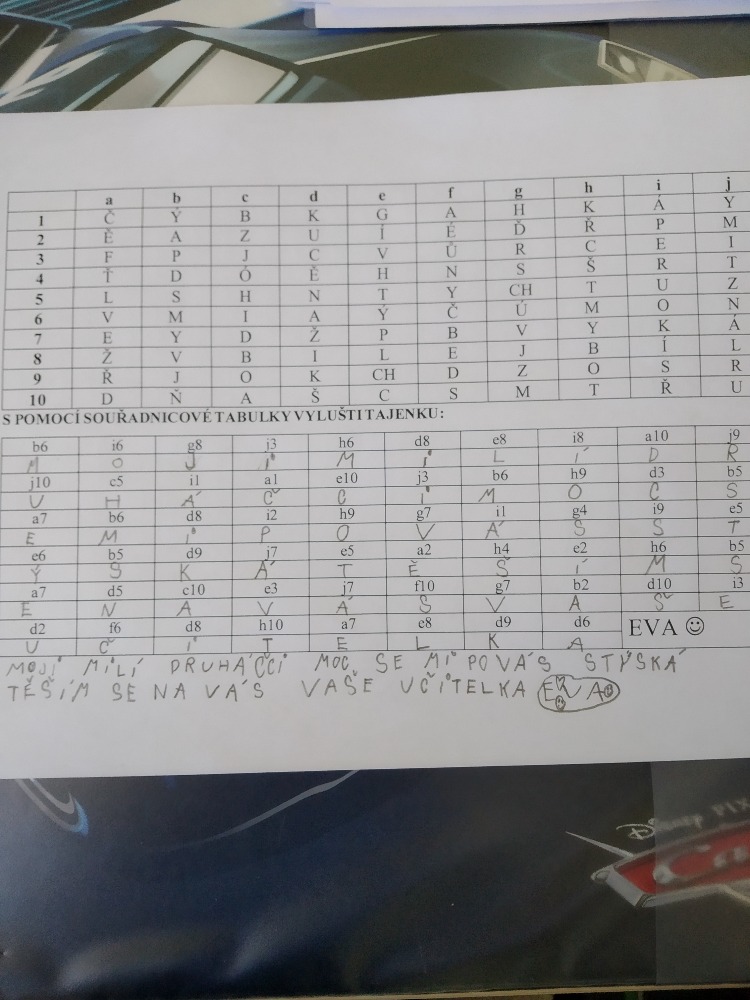 a b c d e f g h i j
1 Č Ý B K G A H K Á Y
2 Ě A Z U Í É Ď Ř P M
3 F P J C V Ů R C E I
4 Ť D Ó Ě H N S Š R T
5 L S H N T Y CH T U Z
6 V M I A Ý Č Ú M O N
7 E Y D Ž P B V Y K Á
8 Ž V B I L E J B Í L
9 Ř J O K CH D Z O S R
10 D Ň A Š C S M T Ř U
S POMOCÍ SOUŘADNICOVÉ TABULKY VYLUŠTI TAJENKU:
b6 i6 g8 j3 h6 d8 e8 i8 a10 j9
M O J I M I L Í D R
j10 c5 i1 a1 e10 j3 b6 h9 d3 b5
U H Á Č C I M O C S
a7 b6 d8 i2 h9 g7 i1 g4 i9 e5
E M I P O V Á S S T
e6 b5 d9 j7 e5 a2 h4 e2 h6 b5
Ý S K Á T Ě Š Í M S
a7 d5 c10 e3 j7 f10 g7 b2 d10 i3
E N A V Á S V A Š E
d2 f6 d8 h10 a7 e8 d9 d6 EVA ☺
U Č I T E L K A
MOJI MILÍ DRUHÁČCI MOC SE MI PO VÁS STÝSKÁ
TĚŠÍM SE NA VÁS VAŠE UČITELKA EVA
Disney PIX
Ca